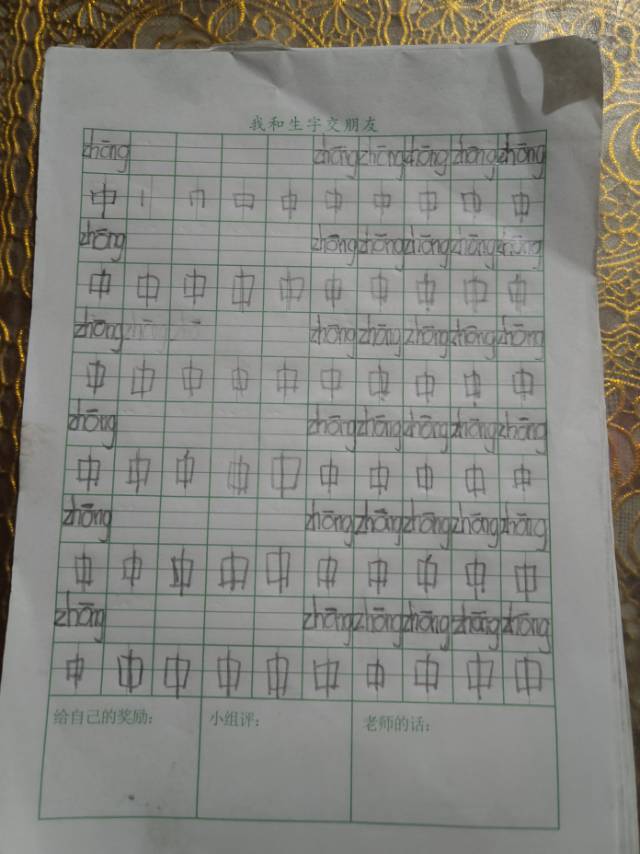 我和生字交朋友
zhōng zhōng zhōng zhōng zhōng zhōng
中 丨 冂 口 中 中 中 中 中 中
zhōng zhōng zhōng zhōng zhōng zhōng
中 中 中 中 中 中 中 中 中 中
zhōng zhōng zhō zhōng zhōng zhōng zhōng zhōng
中 中 中 中 中 中 中 中 中 中
zhōng zhōng zhōng zhōng zhōng zhōng
中 中 中 中 中 中 中 中 中 中
zhōng zhōng zhōng zhōng zhōng zhōng
中 中 中 中 中 中 中 中 中 中
zhōng zhōng zhōng zhōng zhōng zhōng
中 中 中 中 中 中 中 中 中 中
给自己的奖励： 小组评： 老师的话：